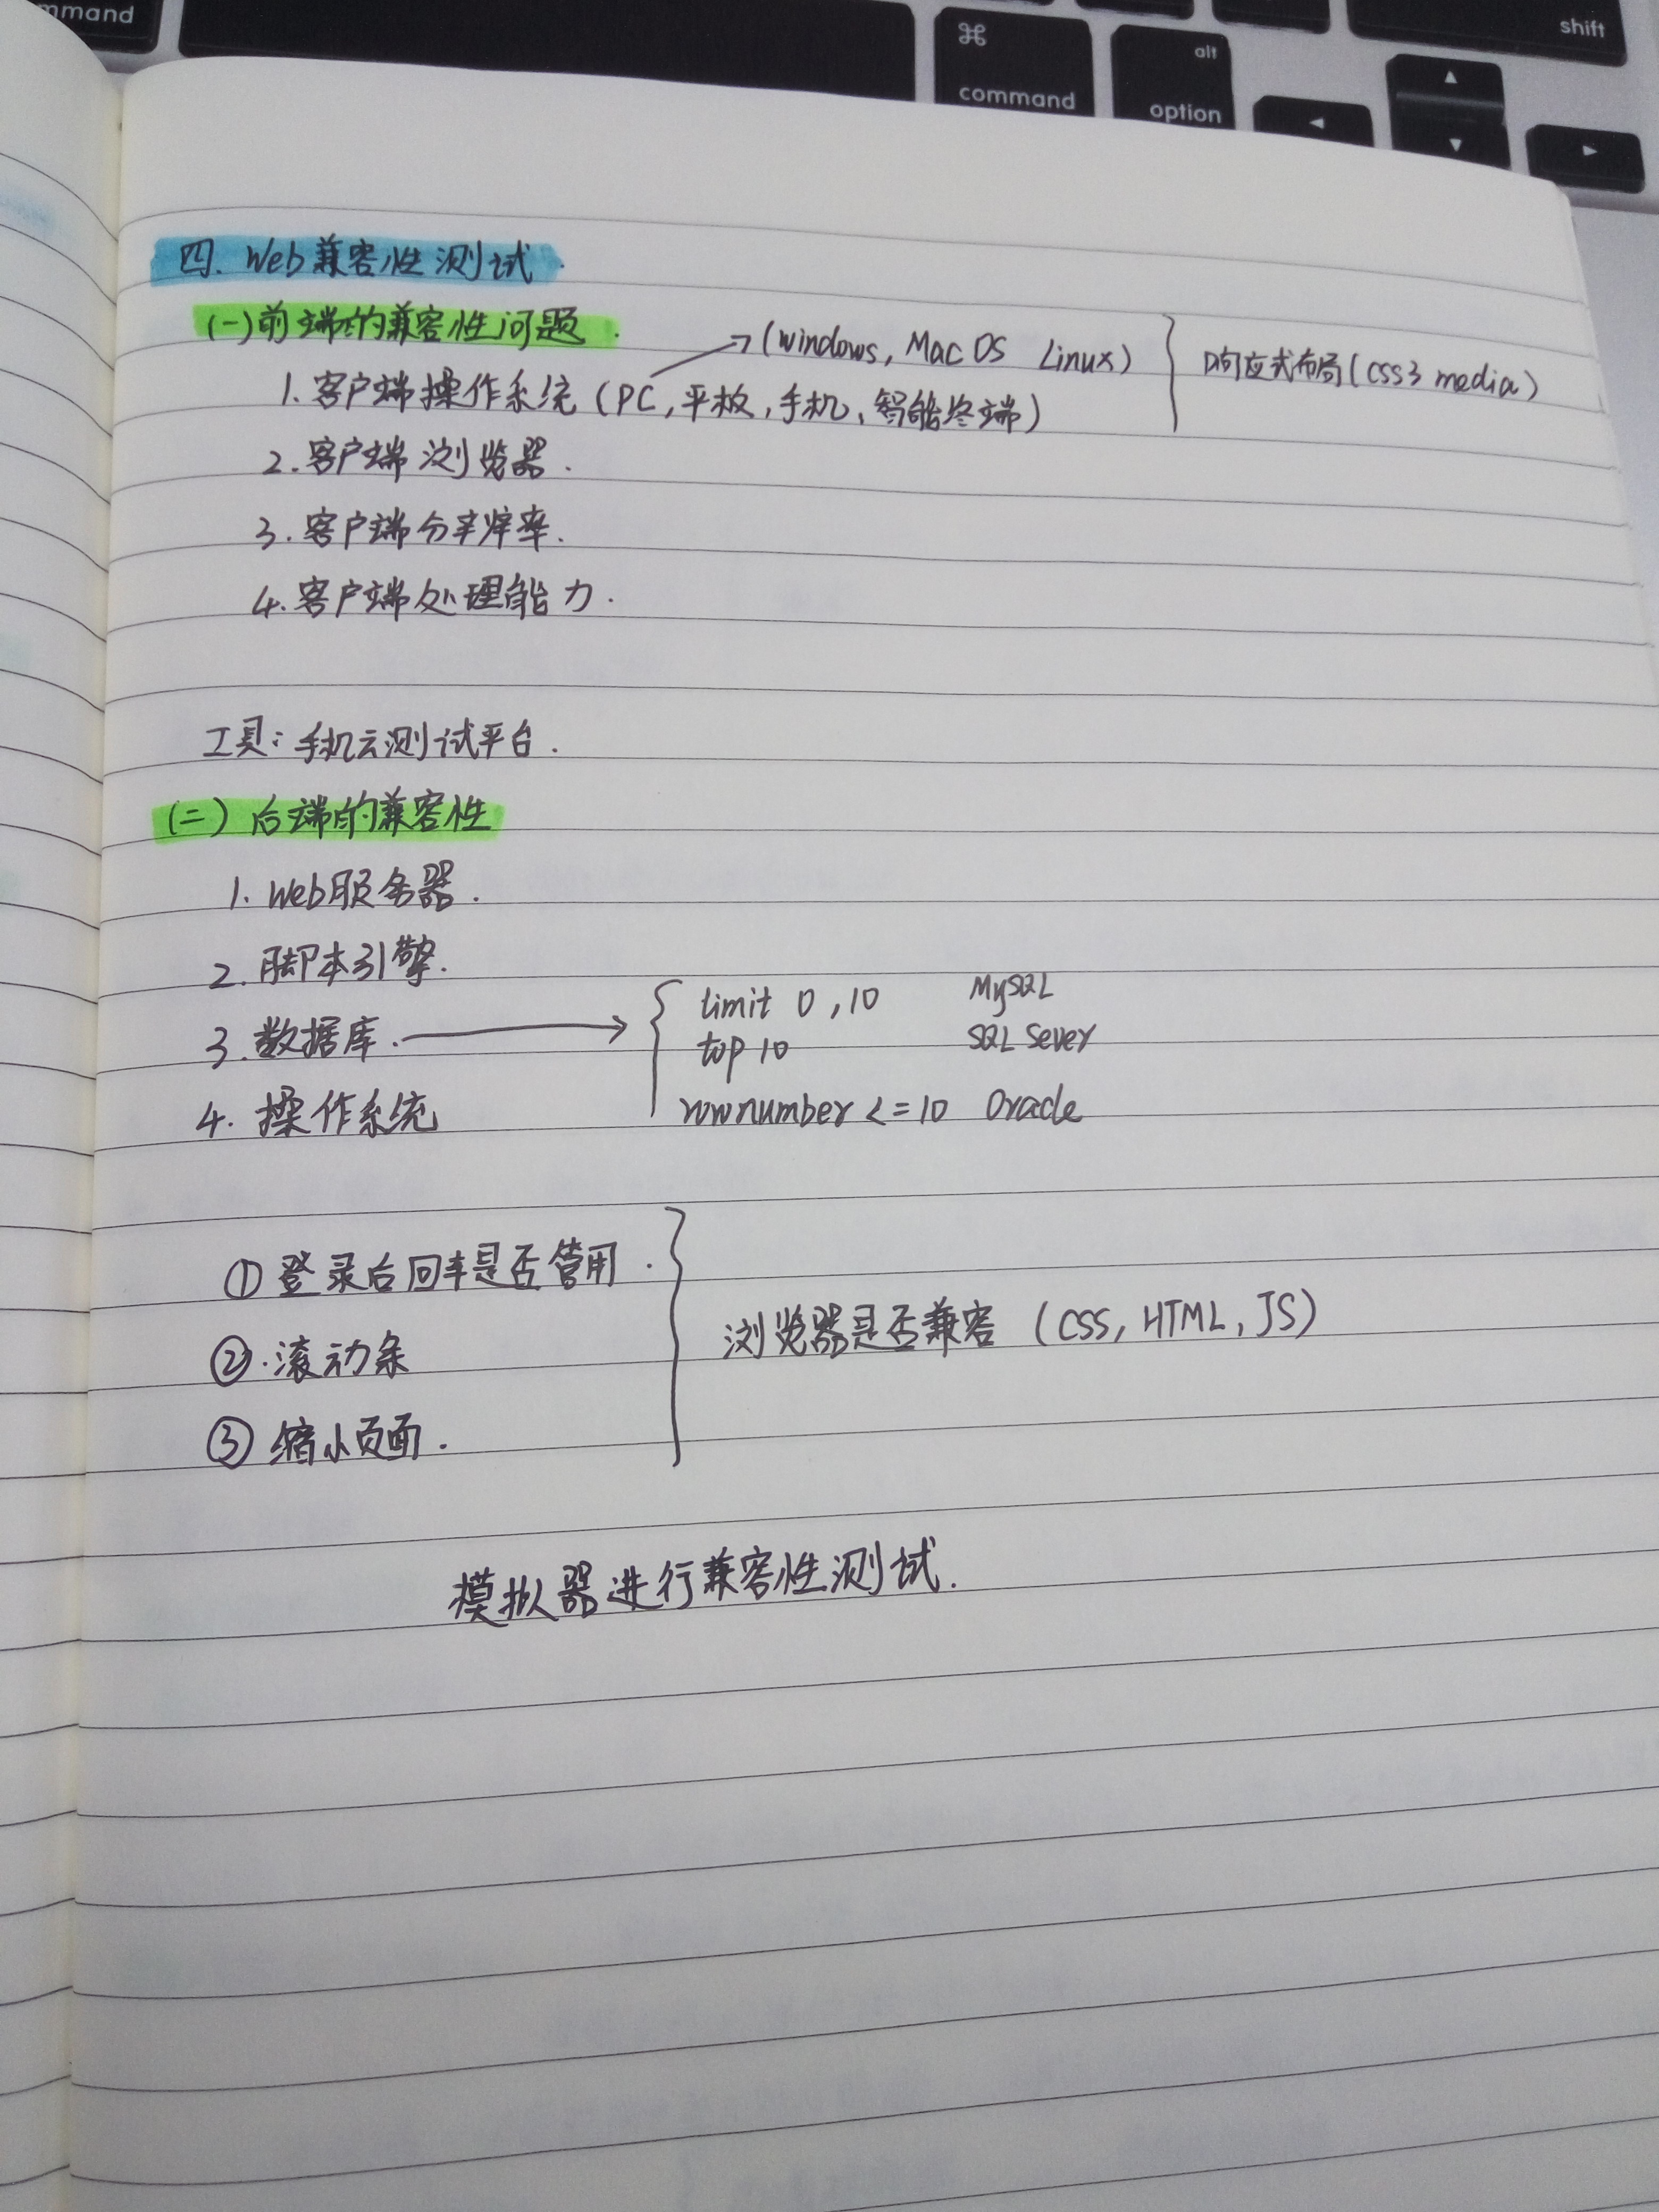 mmand
⌘
command
alt
option
shift
四. Web兼容性测试.
(一)前端的兼容性问题.
(windows, Mac OS Linux)
响应式布局(CSS3 media)
1. 客户端操作系统(PC,平板,手机,智能终端)
2. 客户端浏览器.
3. 客户端分辨率.
4. 客户端处理能力.
工具:手机云测试平台.
(二)后端的兼容性
1. Web服务器.
2. 脚本引擎.
3. 数据库.
limit 0,10 MySQL
top 10 SQL Sever
rownumber <=10 Oracle
4. 操作系统
① 登录后回车是否管用.
②.滚动条
③ 缩小页面.
浏览器是否兼容 (CSS, HTML, JS)
模拟器进行兼容性测试.